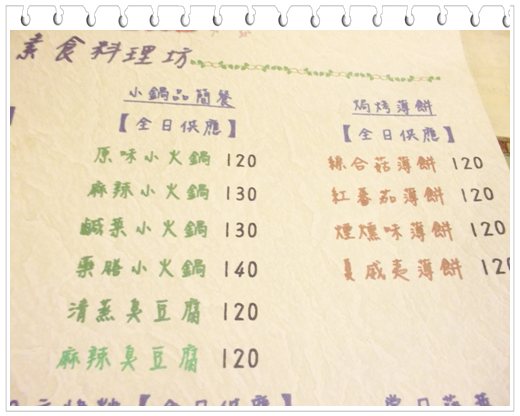 素食料理坊
小鍋品簡餐
【全日供應】
原味小火鍋 120
麻辣小火鍋 130
鹹菜小火鍋 130
藥膳小火鍋 140
清蒸臭豆腐 120
麻辣臭豆腐 120
焗烤薄餅
【全日供應】
綜合菇薄餅 120
紅番茄薄餅 120
煙燻味薄餅 120
夏威夷薄餅 120
【全日供應】